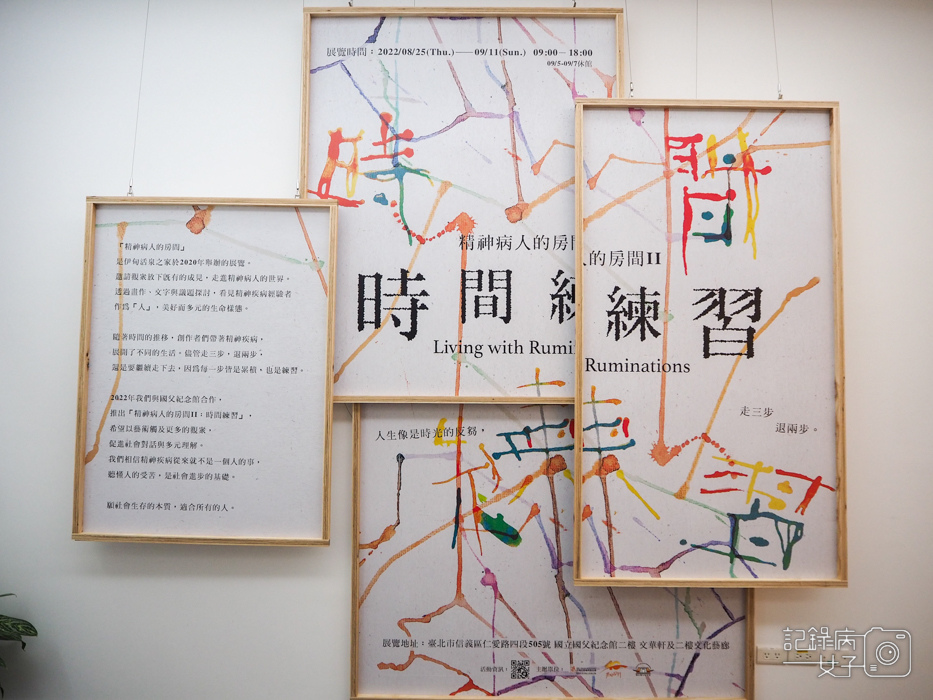 展覽時間：2022/08/25(Thu.)——09/11(Sun.) 09:00－18:00
09/5-09/7休館
精神病人的房間
時間練
Living with Rumi
人的房間II
練習
Ruminations
走三步
退兩步。
「精神病人的房間」
是伊甸活泉之家於2020年舉辦的展覽。
邀請觀眾放下既有的成見，走進精神病人的世界。
透過畫作、文字與議題探討，看見精神疾病經驗者
作為「人」，美好而多元的生命樣態。
隨著時間的推移，創作者們帶著精神疾病，
展開了不同的生活。儘管走三步，退兩步，
還是要繼續走下去，因為每一步皆是累積，也是練習。
2022年我們與國父紀念館合作，
推出「精神病人的房間II：時間練習」，
希望以藝術觸及更多的觀眾，
促進社會對話與多元理解。
我們相信精神疾病從來就不是一個人的事，
聽懂人的受苦，是社會進步的基礎。
願社會生存的本質，適合所有的人。
人生像是時光的反芻，
展覽地址：臺北市信義區仁愛路四段505號 國立國父紀念館二樓 文華軒及二樓文化藝廊
活動資訊：
主辦單位：
記錄病
女子